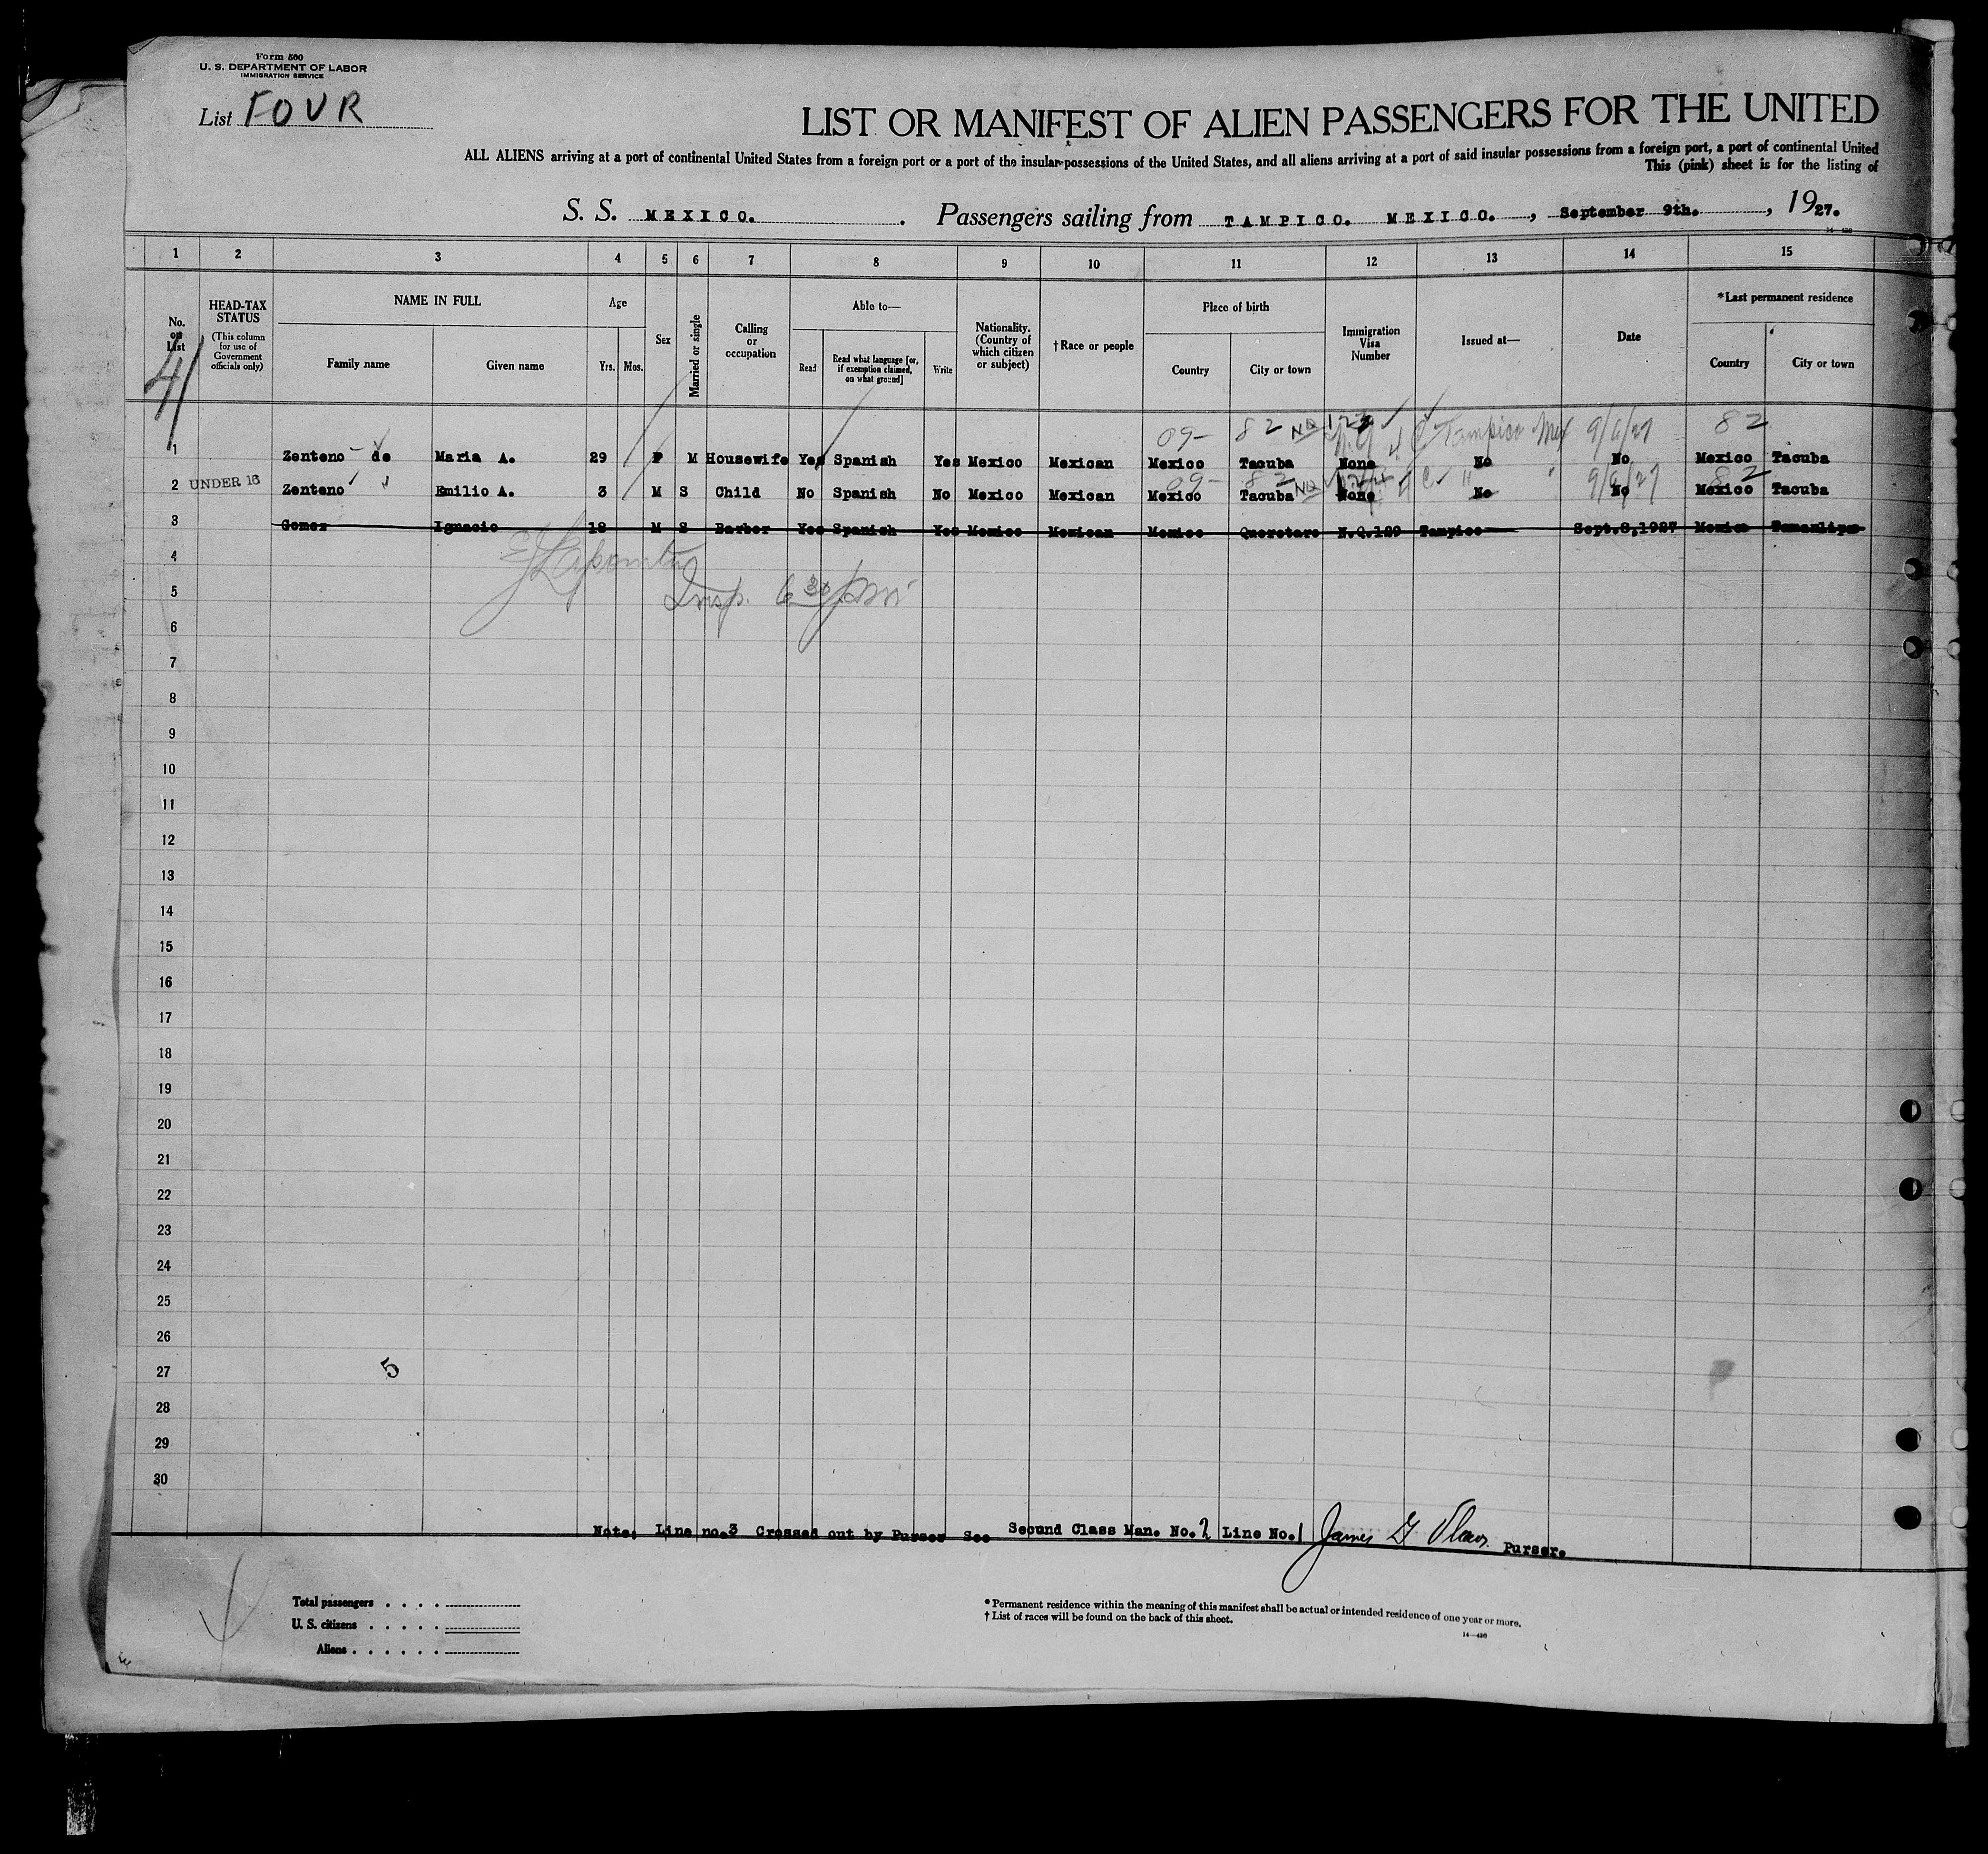 Form 500
U. S. DEPARTMENT OF LABOR
IMMIGRATION SERVICE
List FOUR
LIST OR MANIFEST OF ALIEN PASSENGERS FOR THE UNITED
ALL ALIENS arriving at a port of continental United States from a foreign port or a port of the insular possessions of the United States, and all aliens arriving at a port of said insular possessions from a foreign port, a port of continental United
This (pink) sheet is for the listing of
S. S. MEXICO. Passengers sailing from TAMPICO. MEXICO., September 9th., 1927.
14—430
1 2 3 4 5 6 7 8 9 10 11 12 13 14 15
No. on List
41
HEAD-TAX STATUS (This column for use of Government officials only)
NAME IN FULL Family name Given name
Age Yrs. Mos.
Sex
Married or single
Calling or occupation
Able to— Read Read what language [or, if exemption claimed, on what ground] Write
Nationality. (Country of which citizen or subject)
†Race or people
Place of birth Country City or town
Immigration Visa Number
Issued at—
Date
*Last permanent residence Country City or town
09- 82 NQ 123 Tampico Mex 9/6/27 82
1 Zenteno de Maria A. 29 F M Housewife Yes Spanish Yes Mexico Mexican Mexico Tacuba None No No Mexico Tacuba
09- 82 NQ 9/6/27 82
2 UNDER 16 Zenteno Emilio A. 3 M S Child No Spanish No Mexico Mexican Mexico Tacuba None No No Mexico Tacuba
3 Gomez Ignacio 18 M S Barber Yes Spanish Yes Mexico Mexican Mexico Queretaro N.Q.129 Tampico Sept.8,1927 Mexico Tamaulipas
4
5 Insp. 6 30 pm
6
7
8
9
10
11
12
13
14
15
16
17
18
19
20
21
22
23
24
25
26
27 5
28
29
30
Note: Line no.3 Crossed out by Purser See Second Class Man. No.2 Line No.1 James Purser.
Total passengers . . . .
U. S. citizens . . . . .
Aliens . . . . . .
* Permanent residence within the meaning of this manifest shall be actual or intended residence of one year or more.
† List of races will be found on the back of this sheet.
14—430